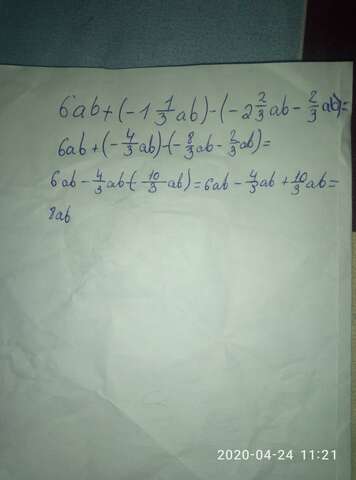 6ab+(-1 1/3 ab)-(-2 2/3 ab - 2/3 ab)=
6ab+(-4/3 ab)-(-8/3 ab - 2/3 ab)=
6ab - 4/3 ab-(-10/3 ab)=6ab - 4/3 ab + 10/3 ab=
8ab
2020-04-24 11:21